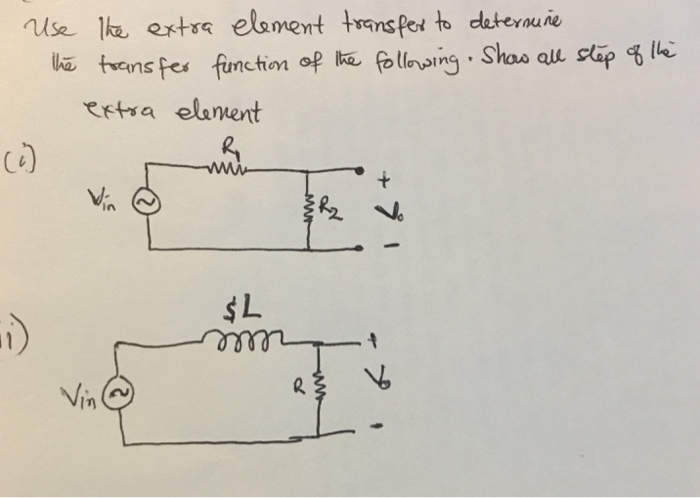 Use the extra element transfer to determine
the transfer function of the following. Show all step of the
extra element
(i)
R1
Vin
R2
+
Vo
-
ii)
sL
+
Vin
R
Vo
-